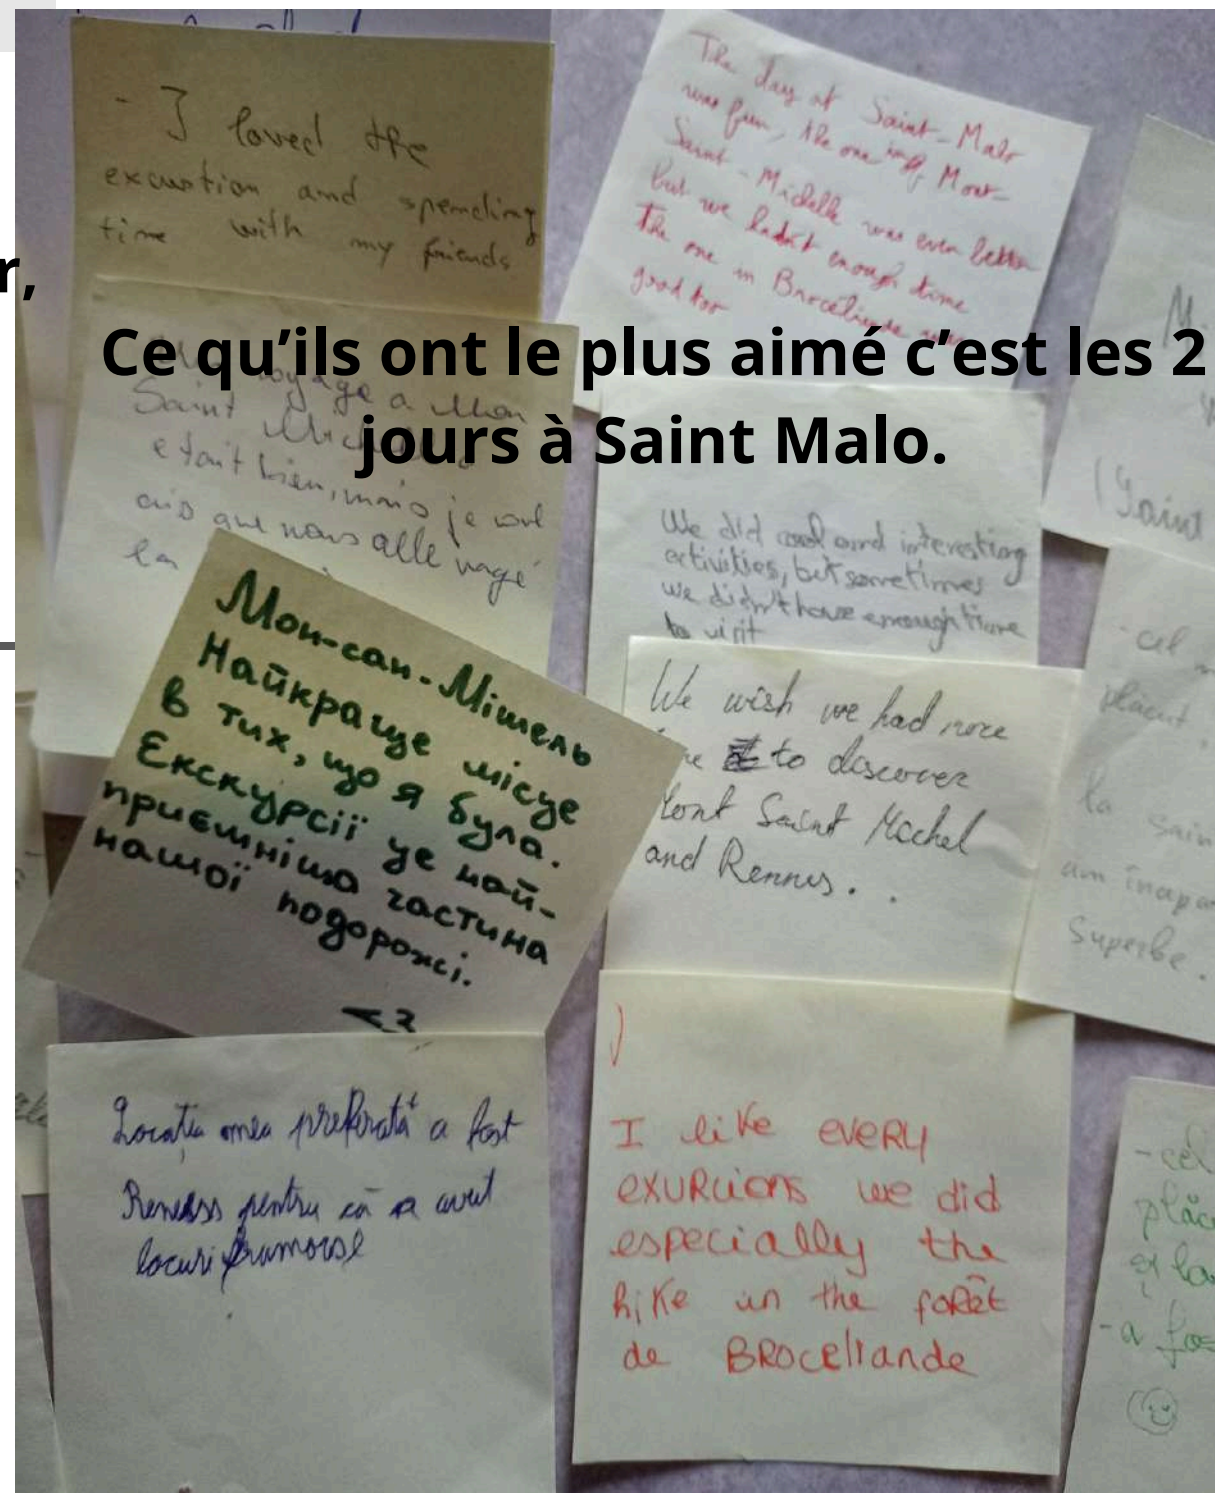 r,
Ce qu’ils ont le plus aimé c’est les 2
jours à Saint Malo.
- I loved the
excustion and spending
time with my friends
The day at Saint-Malo
was fun, the one
Mont-
Saint-Michelle was even better
but we hadn't enough time
The one in Brocéliande was
good too
voyage a Mon
Saint Michelle
etait bien, mais je voul
ais que nous alle nagé
la
We did cool and interesting
activities, but sometimes
we didn't have enough time
to visit
Мон-сан-Мішель
Найкраще місце
в тих, що я була.
Екскурсії це най-
приємніша частина
нашої подорожі.
<3
We wish we had more
to discover
Mont Saint Michel
and Rennes.
Locația mea preferată a fost
pentru că a avut
locuri frumoase
)
I like every
exurcions we did
especially the
hike in the forêt
de Broceliande
M
(Saint
- cel
plăcut
la Sain
am
Superbe.
- cel
plăc
și la
- a fos